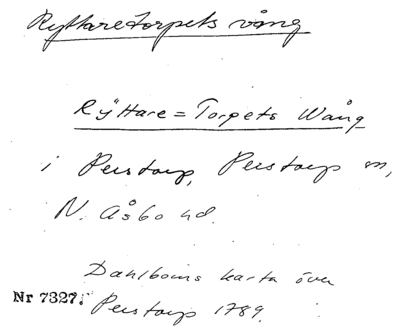 Ryttaretorpets vång
Rÿttare=Torpets Wång
i Perstorp, Perstorp sn,
N. Åsbo hd.
Dahlboms karta över
Nr 7327. Perstorp 1789.